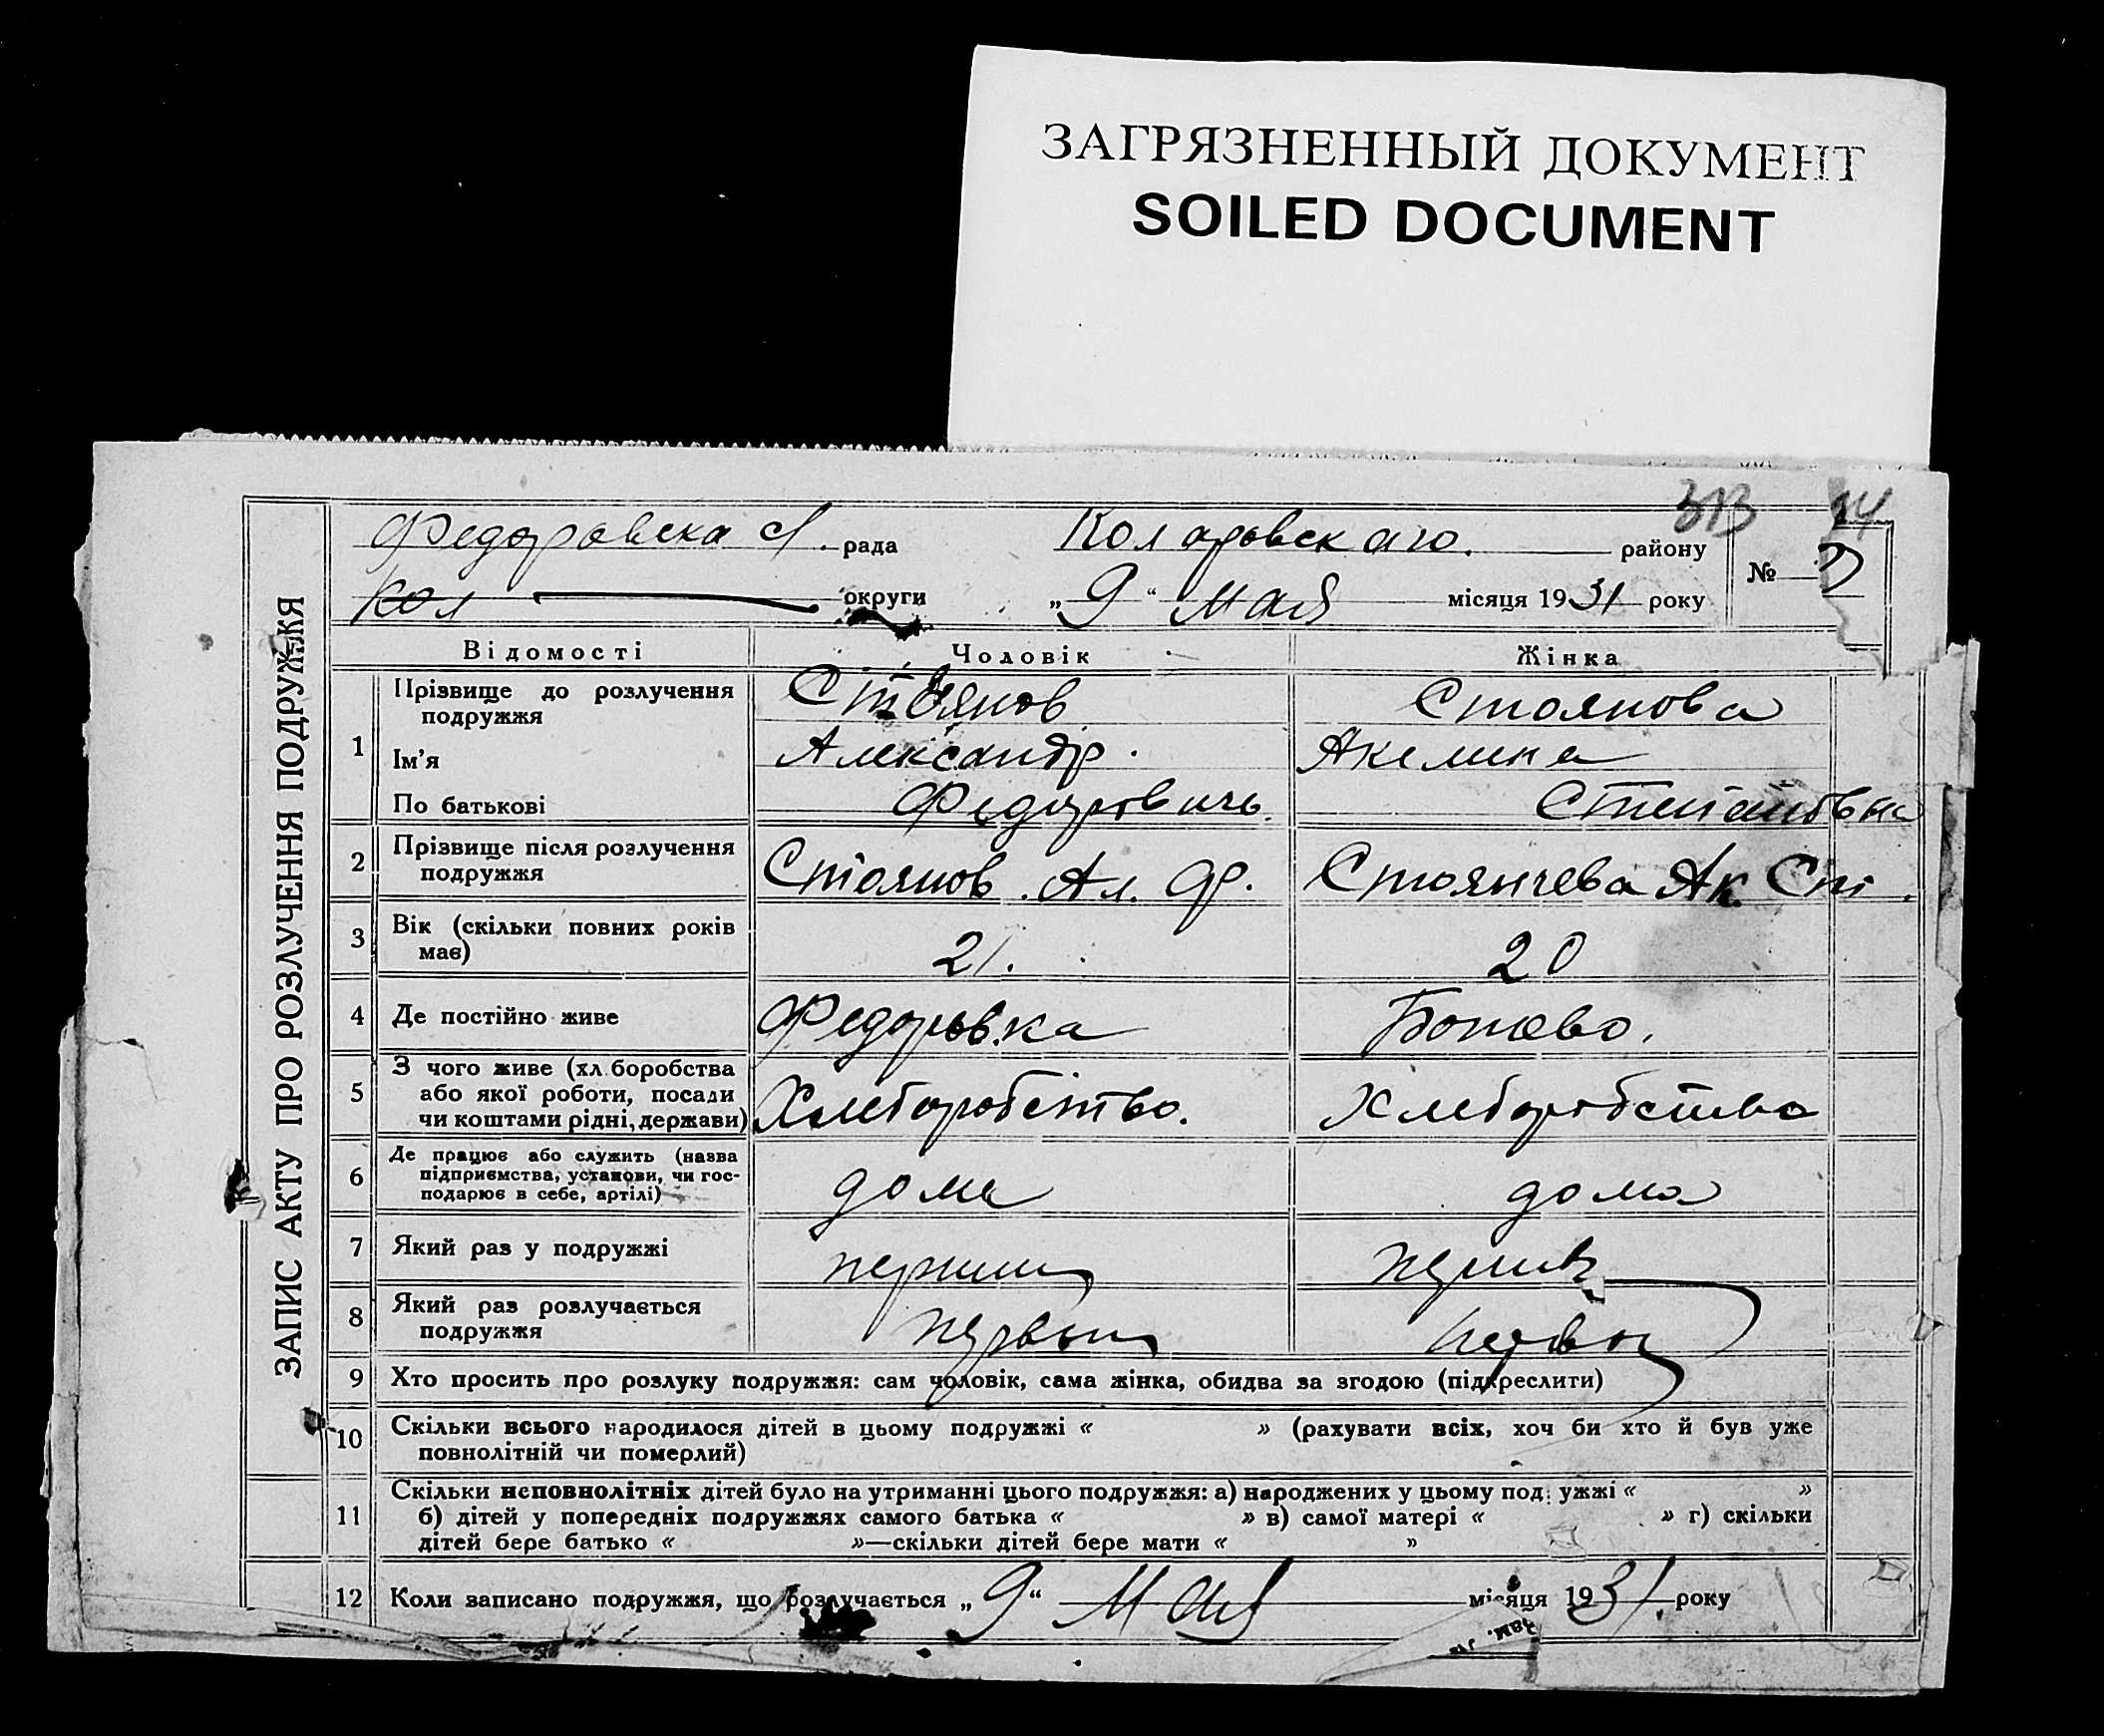 ЗАГРЯЗНЕННЫЙ ДОКУМЕНТ
SOILED DOCUMENT
313
ЗАПИС АКТУ ПРО РОЗЛУЧЕННЯ ПОДРУЖЖЯ
Федоровска с. рада Коларовскаго. району №
Кол округи „9“ мая місяця 1931 року
Відомості Чоловік Жінка
1 Прізвище до розлучення Стоянов Стоянова
подружжя
Ім'я Александр. Акелина
По батькові Федоровичь. Степановна
2 Прізвище після розлучення Стоянов. Ал. Ф. Стоянчева Ак. Ст.
подружжя
3 Вік (скільки повних років 21. 20
має)
4 Де постійно живе Федоровка Ботево.
5 З чого живе (хл.боробства
або якої роботи, посади Хлеборобство. Хлеборобство
чи коштами рідні, держави)
6 Де працює або служить (назва
підприємства, установи, чи гос- дома дома
подарює в себе, артілі)
7 Який раз у подружжі
8 Який раз розлучається первый первый
подружжя
9 Хто просить про розлуку подружжя: сам чоловік, сама жінка, обидва за згодою (підкреслити)
10 Скільки всього народилося дітей в цьому подружжі « » (рахувати всіх, хоч би хто й був уже
повнолітній чи померлий)
11 Скільки неповнолітніх дітей було на утриманні цього подружжя: а) народжених у цьому под. ужжі « »
б) дітей у попередніх подружжях самого батька « » в) самої матері « » г) скільки
дітей бере батько « »—скільки дітей бере мати « »
12 Коли записано подружжя, що розлучається „9“ Мая місяця 1931. року